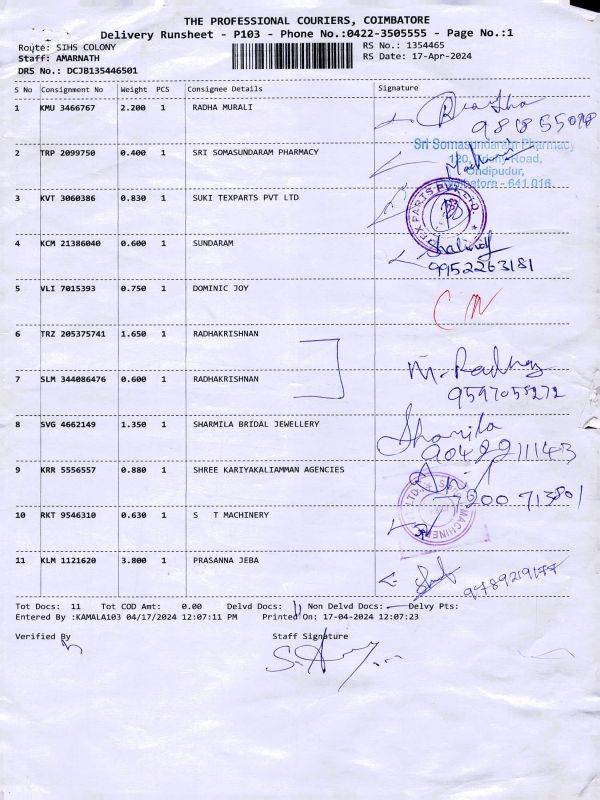 THE PROFESSIONAL COURIERS, COIMBATORE
Delivery Runsheet - P103 - Phone No.:0422-3505555 - Page No.:1
Route: SIHS COLONY
RS No.: 1354465
Staff: AMARNATH
RS Date: 17-Apr-2024
DRS No.: DCJB135446501
S No Consignment No Weight PCS Consignee Details Signature
1 KMU 3466767 2.200 1 RADHA MURALI
2 TRP 2099750 0.400 1 SRI SOMASUNDARAM PHARMACY
Sri Somasundaram Pharmacy
120, Road,
Ondipudur,
- 641 016.
3 KVT 3060386 0.830 1 SUKI TEXPARTS PVT LTD
4 KCM 21386040 0.600 1 SUNDARAM
9952263181
5 VLI 7015393 0.750 1 DOMINIC JOY
6 TRZ 205375741 1.650 1 RADHAKRISHNAN
7 SLM 344086476 0.600 1 RADHAKRISHNAN
M. Radha
9597058272
8 SVG 4662149 1.350 1 SHARMILA BRIDAL JEWELLERY
9 KRR 5556557 0.880 1 SHREE KARIYAKALIAMMAN AGENCIES
10 RKT 9546310 0.630 1 S T MACHINERY
11 KLM 1121620 3.800 1 PRASANNA JEBA
Tot Docs: 11 Tot COD Amt: 0.00 Delvd Docs: 11 Non Delvd Docs: Delvy Pts:
Entered By :KAMALA103 04/17/2024 12:07:11 PM Printed On: 17-04-2024 12:07:23
Verified By Staff Signature